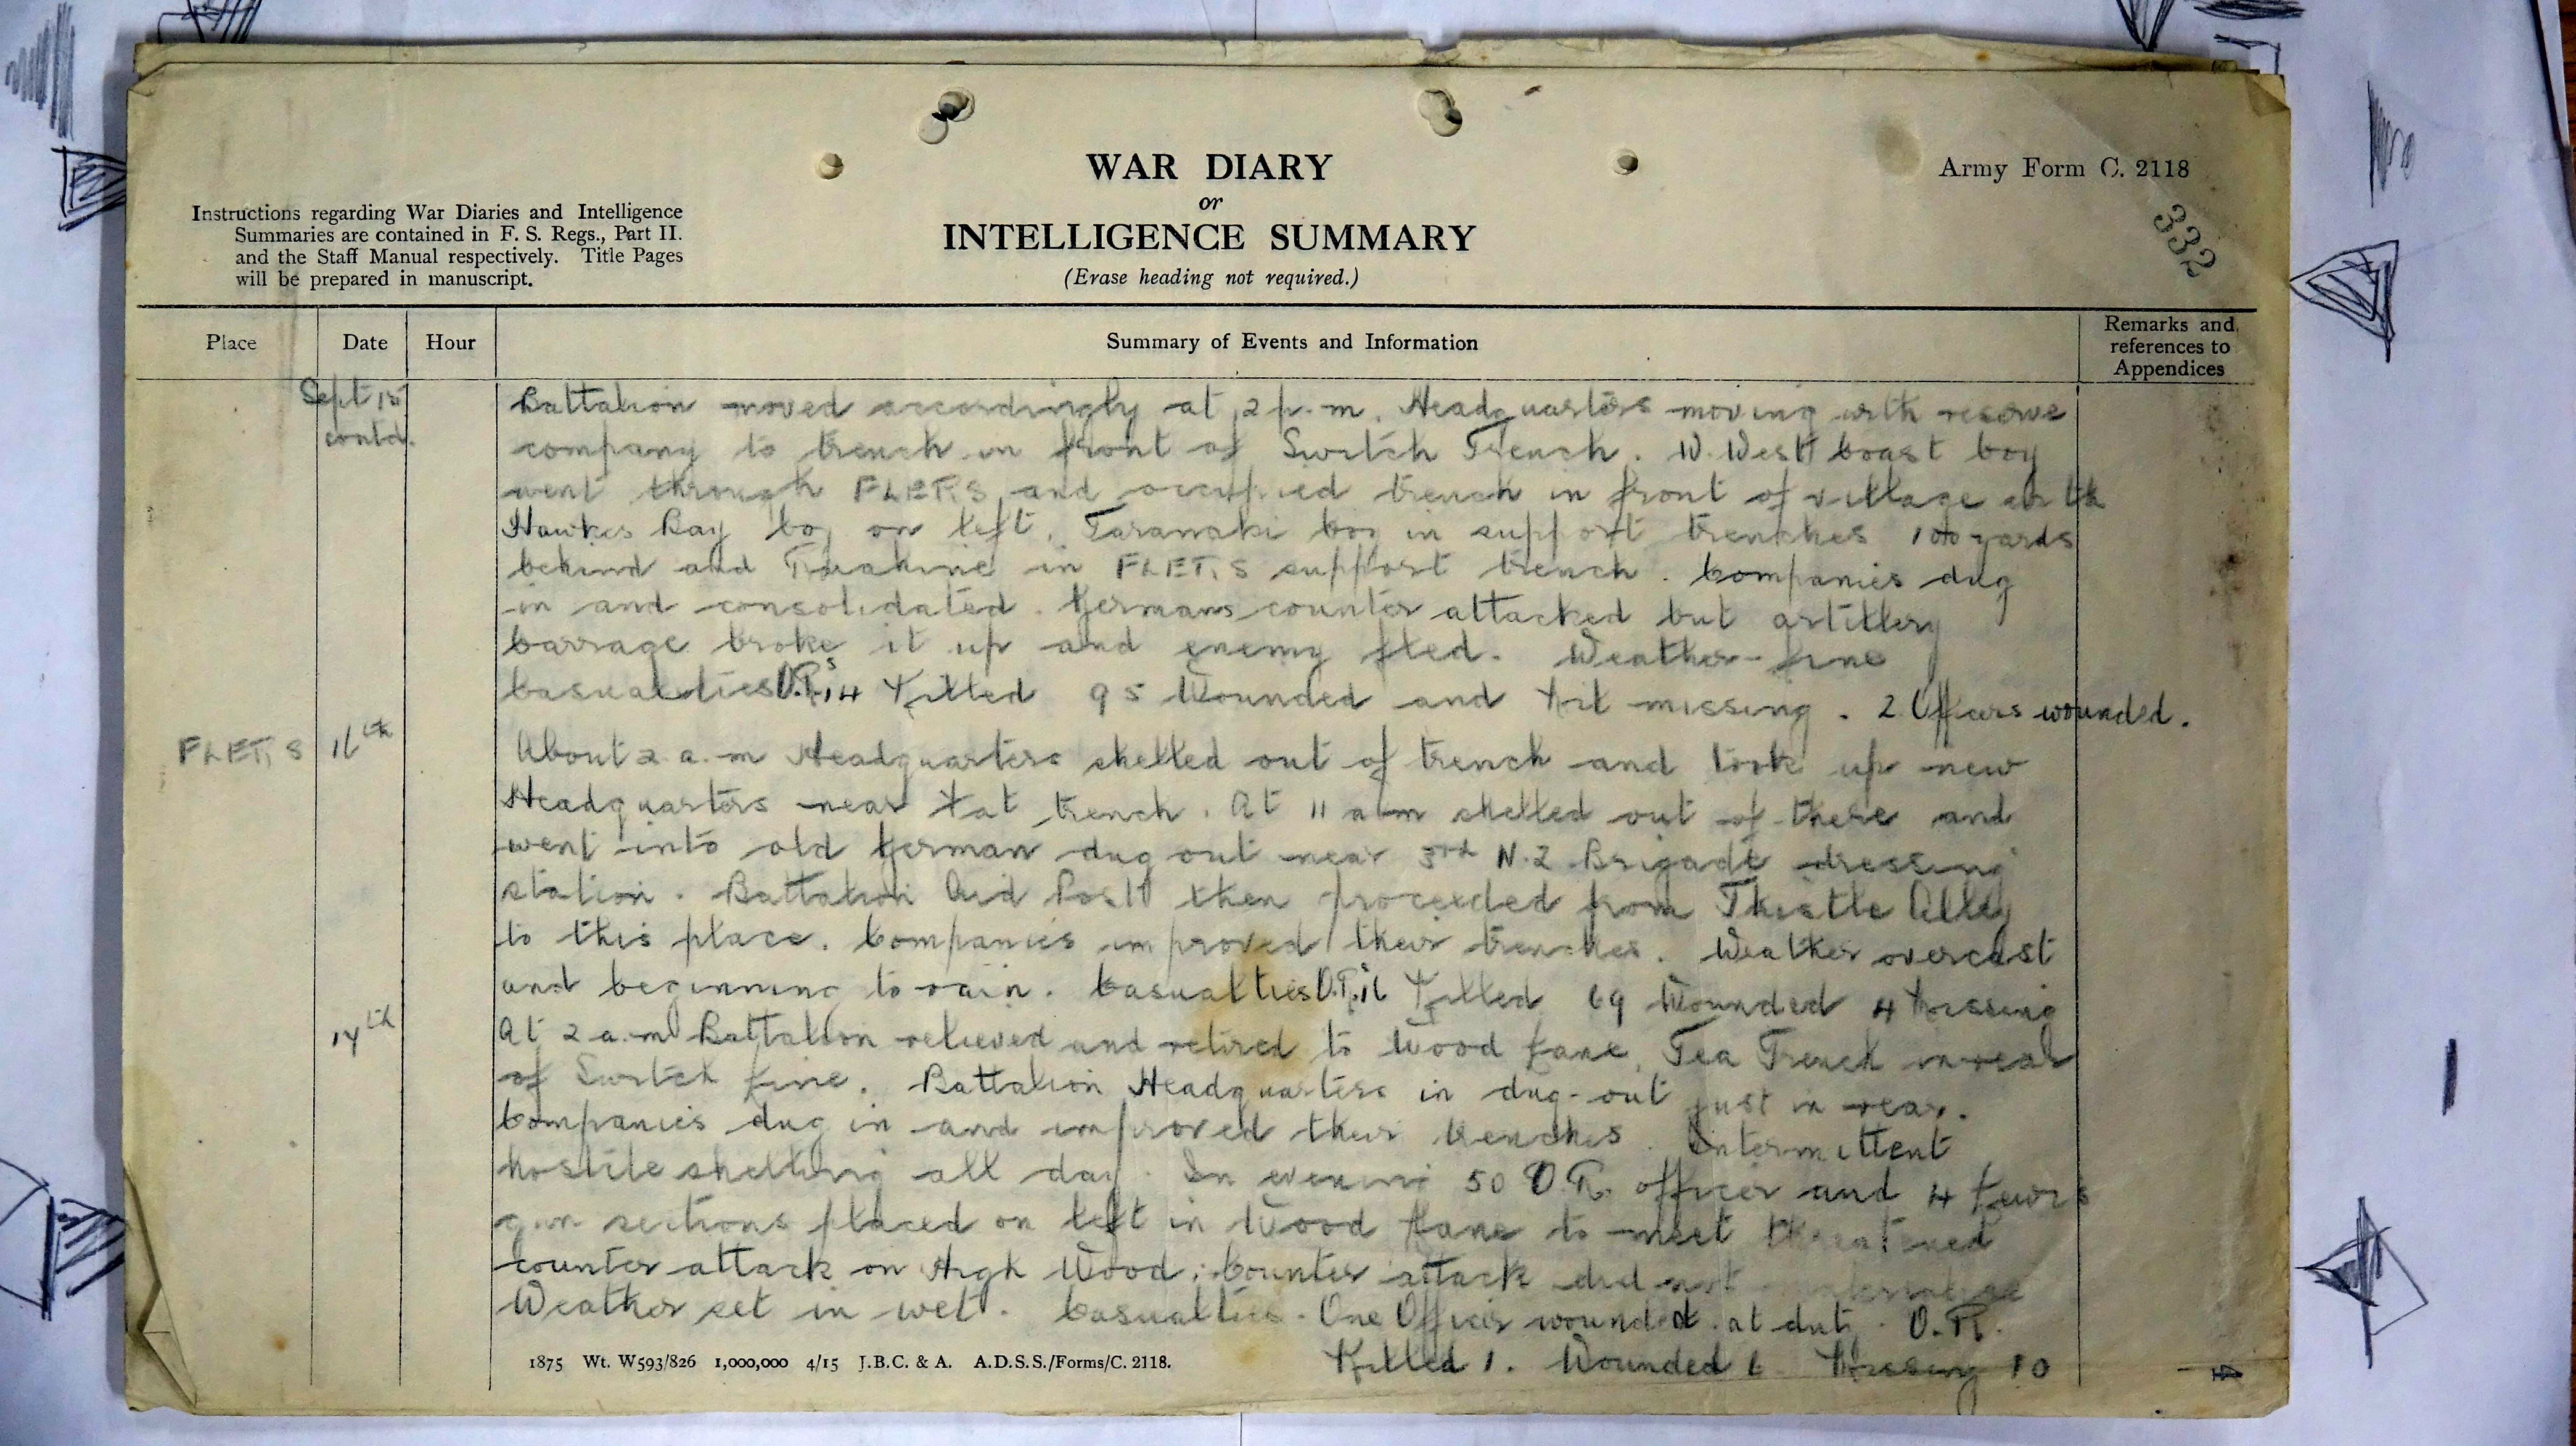 WAR DIARY
or
INTELLIGENCE SUMMARY
(Erase heading not required.)
Army Form C. 2118
332
Instructions regarding War Diaries and Intelligence
Summaries are contained in F. S. Regs., Part II.
and the Staff Manual respectively. Title Pages
will be prepared in manuscript.
Place Date Hour Summary of Events and Information Remarks and references to Appendices
Sept 15 contd. Battalion moved accordingly at 2 p.m. Headquarters moving with reserve
company to trench in front of Switch Trench. W. West Coast Coy
went through FLERS and occupied trench in front of village with
Hawkes Bay Coy on left, Taranaki Coy in support trenches 100 yards
behind and Ruahine in FLERS support trench. Companies dug
in and consolidated. Germans counter attacked but artillery
barrage broke it up and enemy fled. Weather fine
Casualties O.R.s 14 Killed 95 Wounded and Nil missing. 2 Officers wounded.
FLERS 16th About 2 a.m Headquarters shelled out of trench and took up new
Headquarters near Fat trench. At 11 a.m shelled out of there and
went into old German dug out near 3rd N.Z. Brigade dressing
station. Battalion Aid Post then proceeded from Thistle Alley
to this place. Companies improved their trenches. Weather overcast
and beginning to rain. Casualties O.R. 16 Killed 69 Wounded 4 Missing
17th At 2 a.m Battalion relieved and retired to Wood Lane, Tea Trench in rear
of Switch Line. Battalion Headquarters in dug-out just in rear.
Companies dug in and improved their trenches. Intermittent
hostile shelling all day. In evening 50 O.R. officer and 4 Lewis
gun sections placed on left in Wood Lane to meet threatened
counter attack on High Wood. Counter attack did not materialize
Weather set in wet. Casualties. One Officer wounded at duty. O.R.
Killed 1. Wounded 6 Missing 10
1875 Wt. W593/826 1,000,000 4/15 J.B.C. & A. A.D.S.S./Forms/C. 2118.